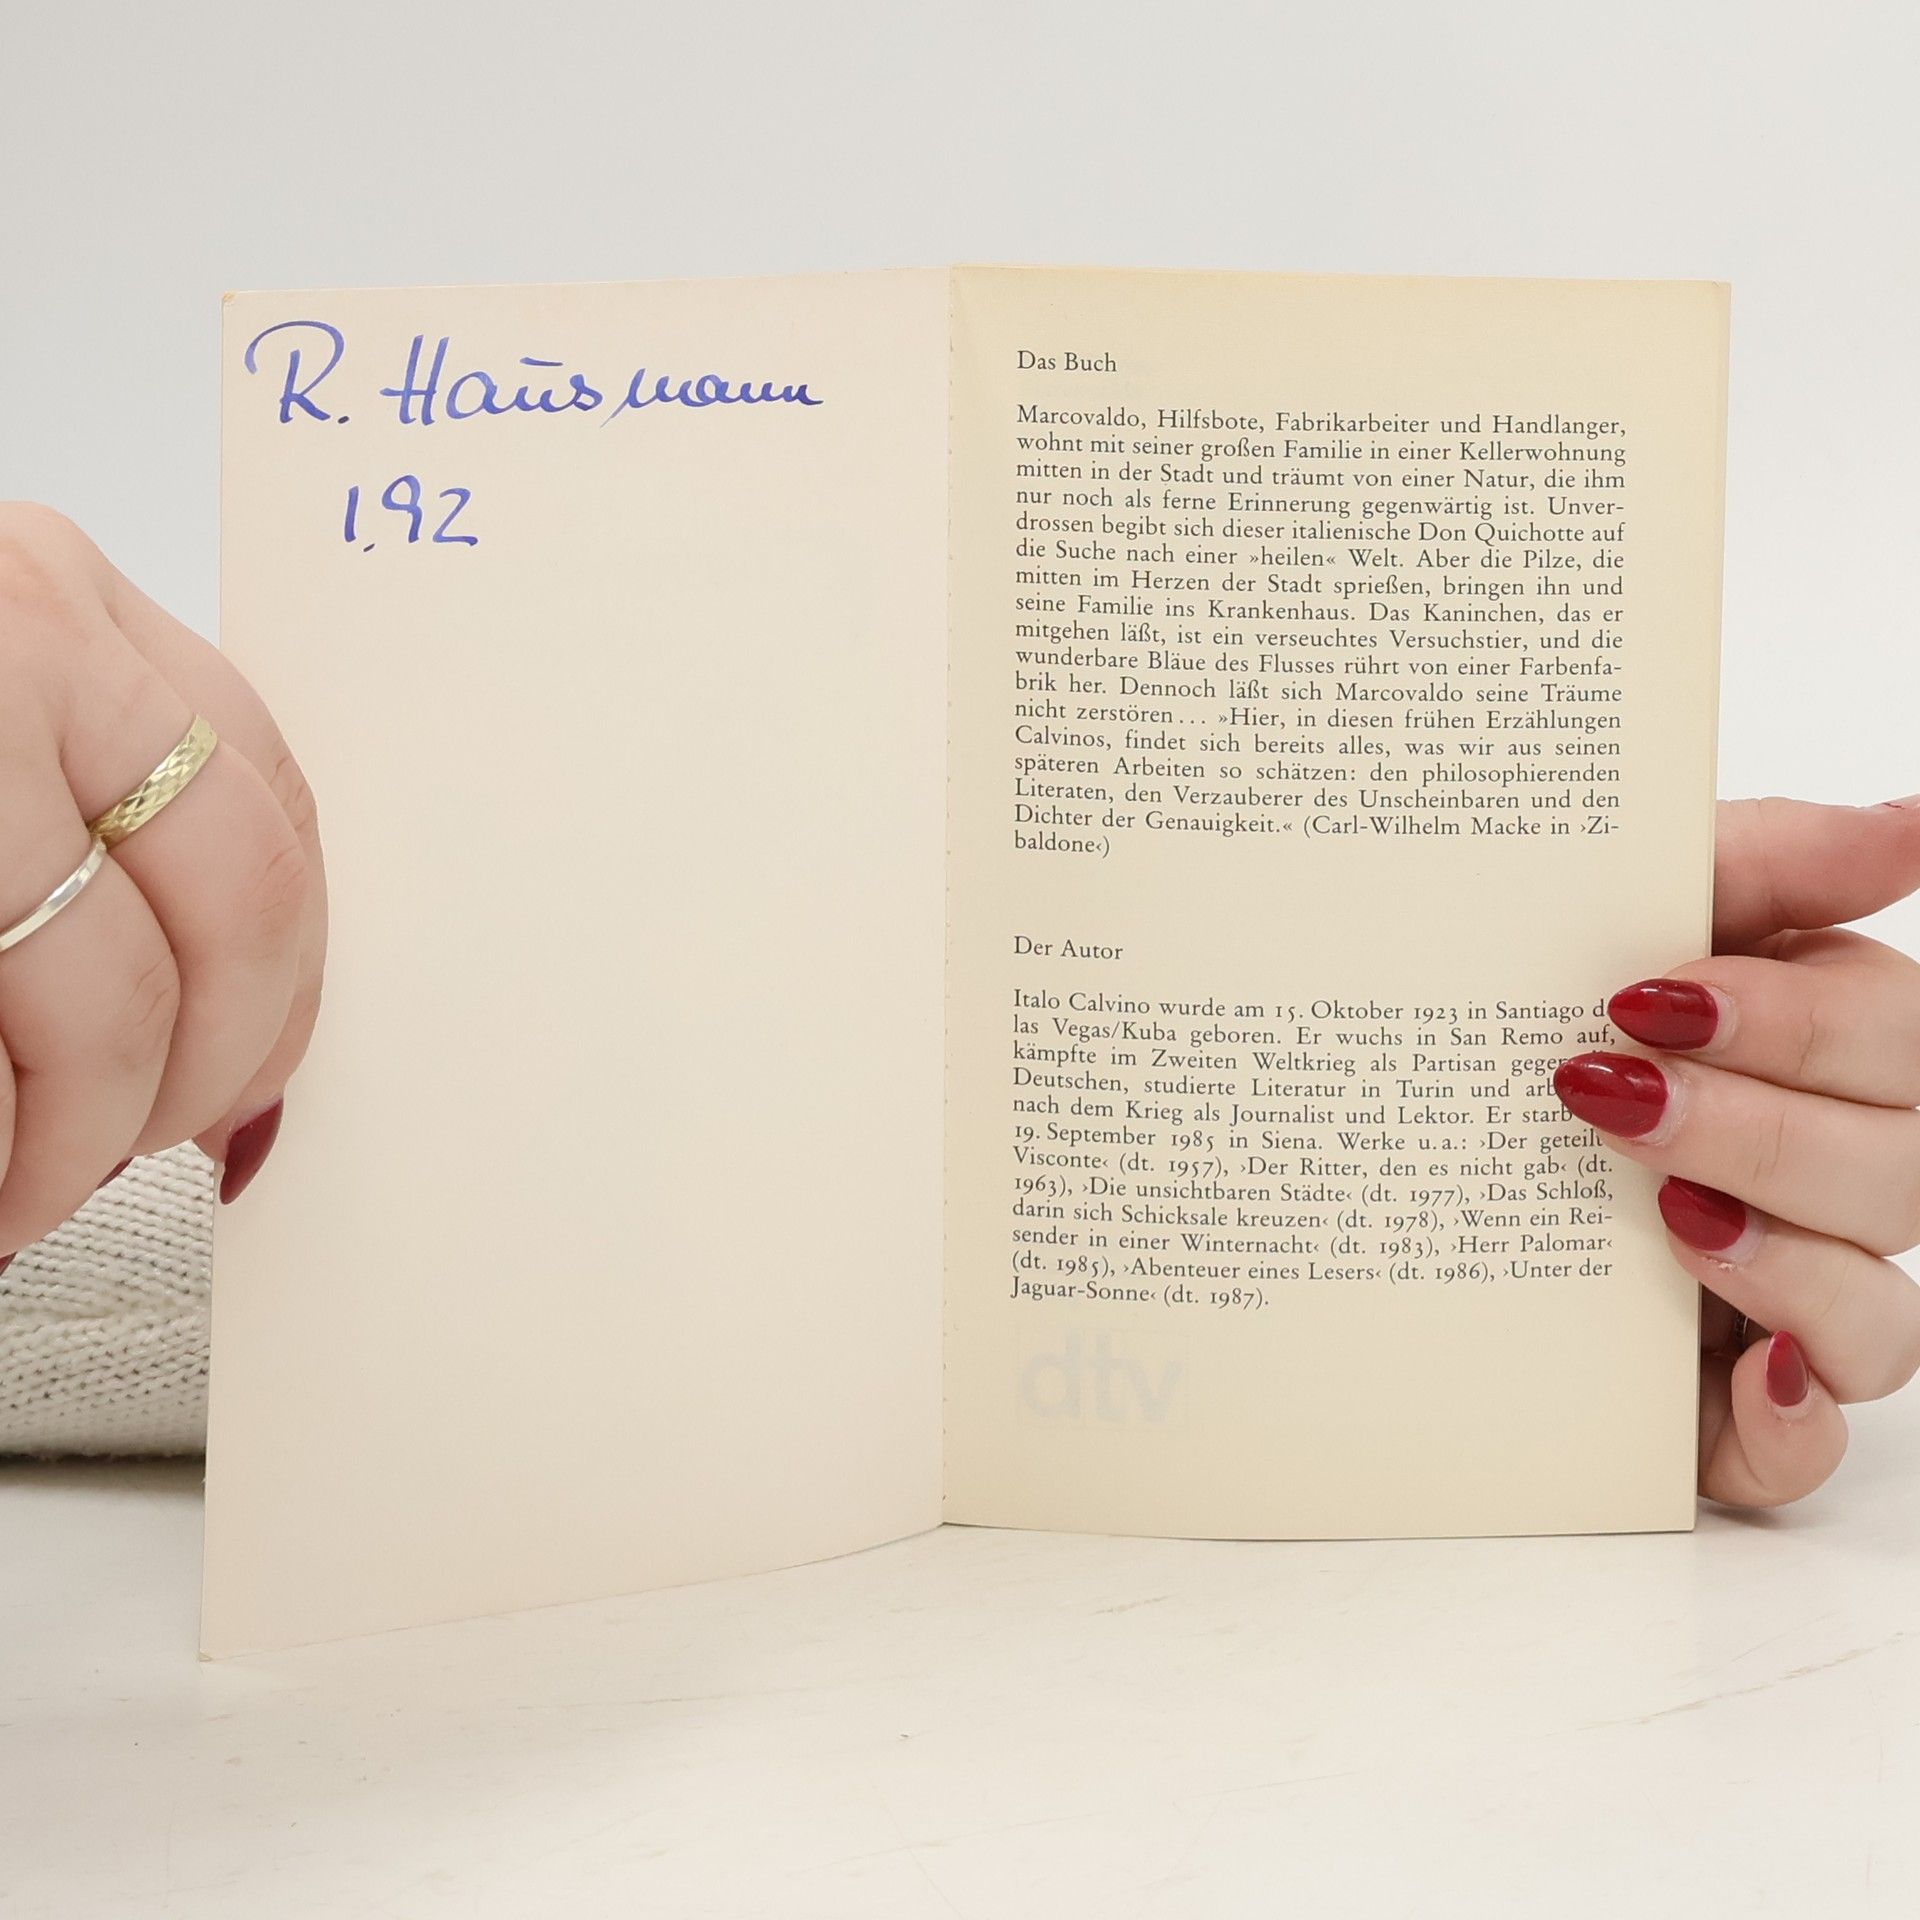 R. Hausmann
1.92
Das Buch
Marcovaldo, Hilfsbote, Fabrikarbeiter und Handlanger,
wohnt mit seiner großen Familie in einer Kellerwohnung
mitten in der Stadt und träumt von einer Natur, die ihm
nur noch als ferne Erinnerung gegenwärtig ist. Unver-
drossen begibt sich dieser italienische Don Quichotte auf
die Suche nach einer »heilen« Welt. Aber die Pilze, die
mitten im Herzen der Stadt sprießen, bringen ihn und
seine Familie ins Krankenhaus. Das Kaninchen, das er
mitgehen läßt, ist ein verseuchtes Versuchstier, und die
wunderbare Bläue des Flusses rührt von einer Farbenfa-
brik her. Dennoch läßt sich Marcovaldo seine Träume
nicht zerstören... »Hier, in diesen frühen Erzählungen
Calvinos, findet sich bereits alles, was wir aus seinen
späteren Arbeiten so schätzen: den philosophierenden
Literaten, den Verzauberer des Unscheinbaren und den
Dichter der Genauigkeit.« (Carl-Wilhelm Macke in ›Zi-
baldone‹)
Der Autor
Italo Calvino wurde am 15. Oktober 1923 in Santiago
las Vegas/Kuba geboren. Er wuchs in San Remo auf,
kämpfte im Zweiten Weltkrieg als Partisan
Deutschen, studierte Literatur in Turin und
nach dem Krieg als Journalist und Lektor. Er starb
19. September 1985 in Siena. Werke u.a.: ›Der
Visconte‹ (dt. 1957), ›Der Ritter, den es nicht gab‹ (dt.
1963), ›Die unsichtbaren Städte‹ (dt. 1977), ›Das Schloß,
darin sich Schicksale kreuzen‹ (dt. 1978), ›Wenn ein Rei-
sender in einer Winternacht‹ (dt. 1983), ›Herr Palomar‹
(dt. 1985), ›Abenteuer eines Lesers‹ (dt. 1986), ›Unter der
Jaguar-Sonne‹ (dt. 1987).
dtv